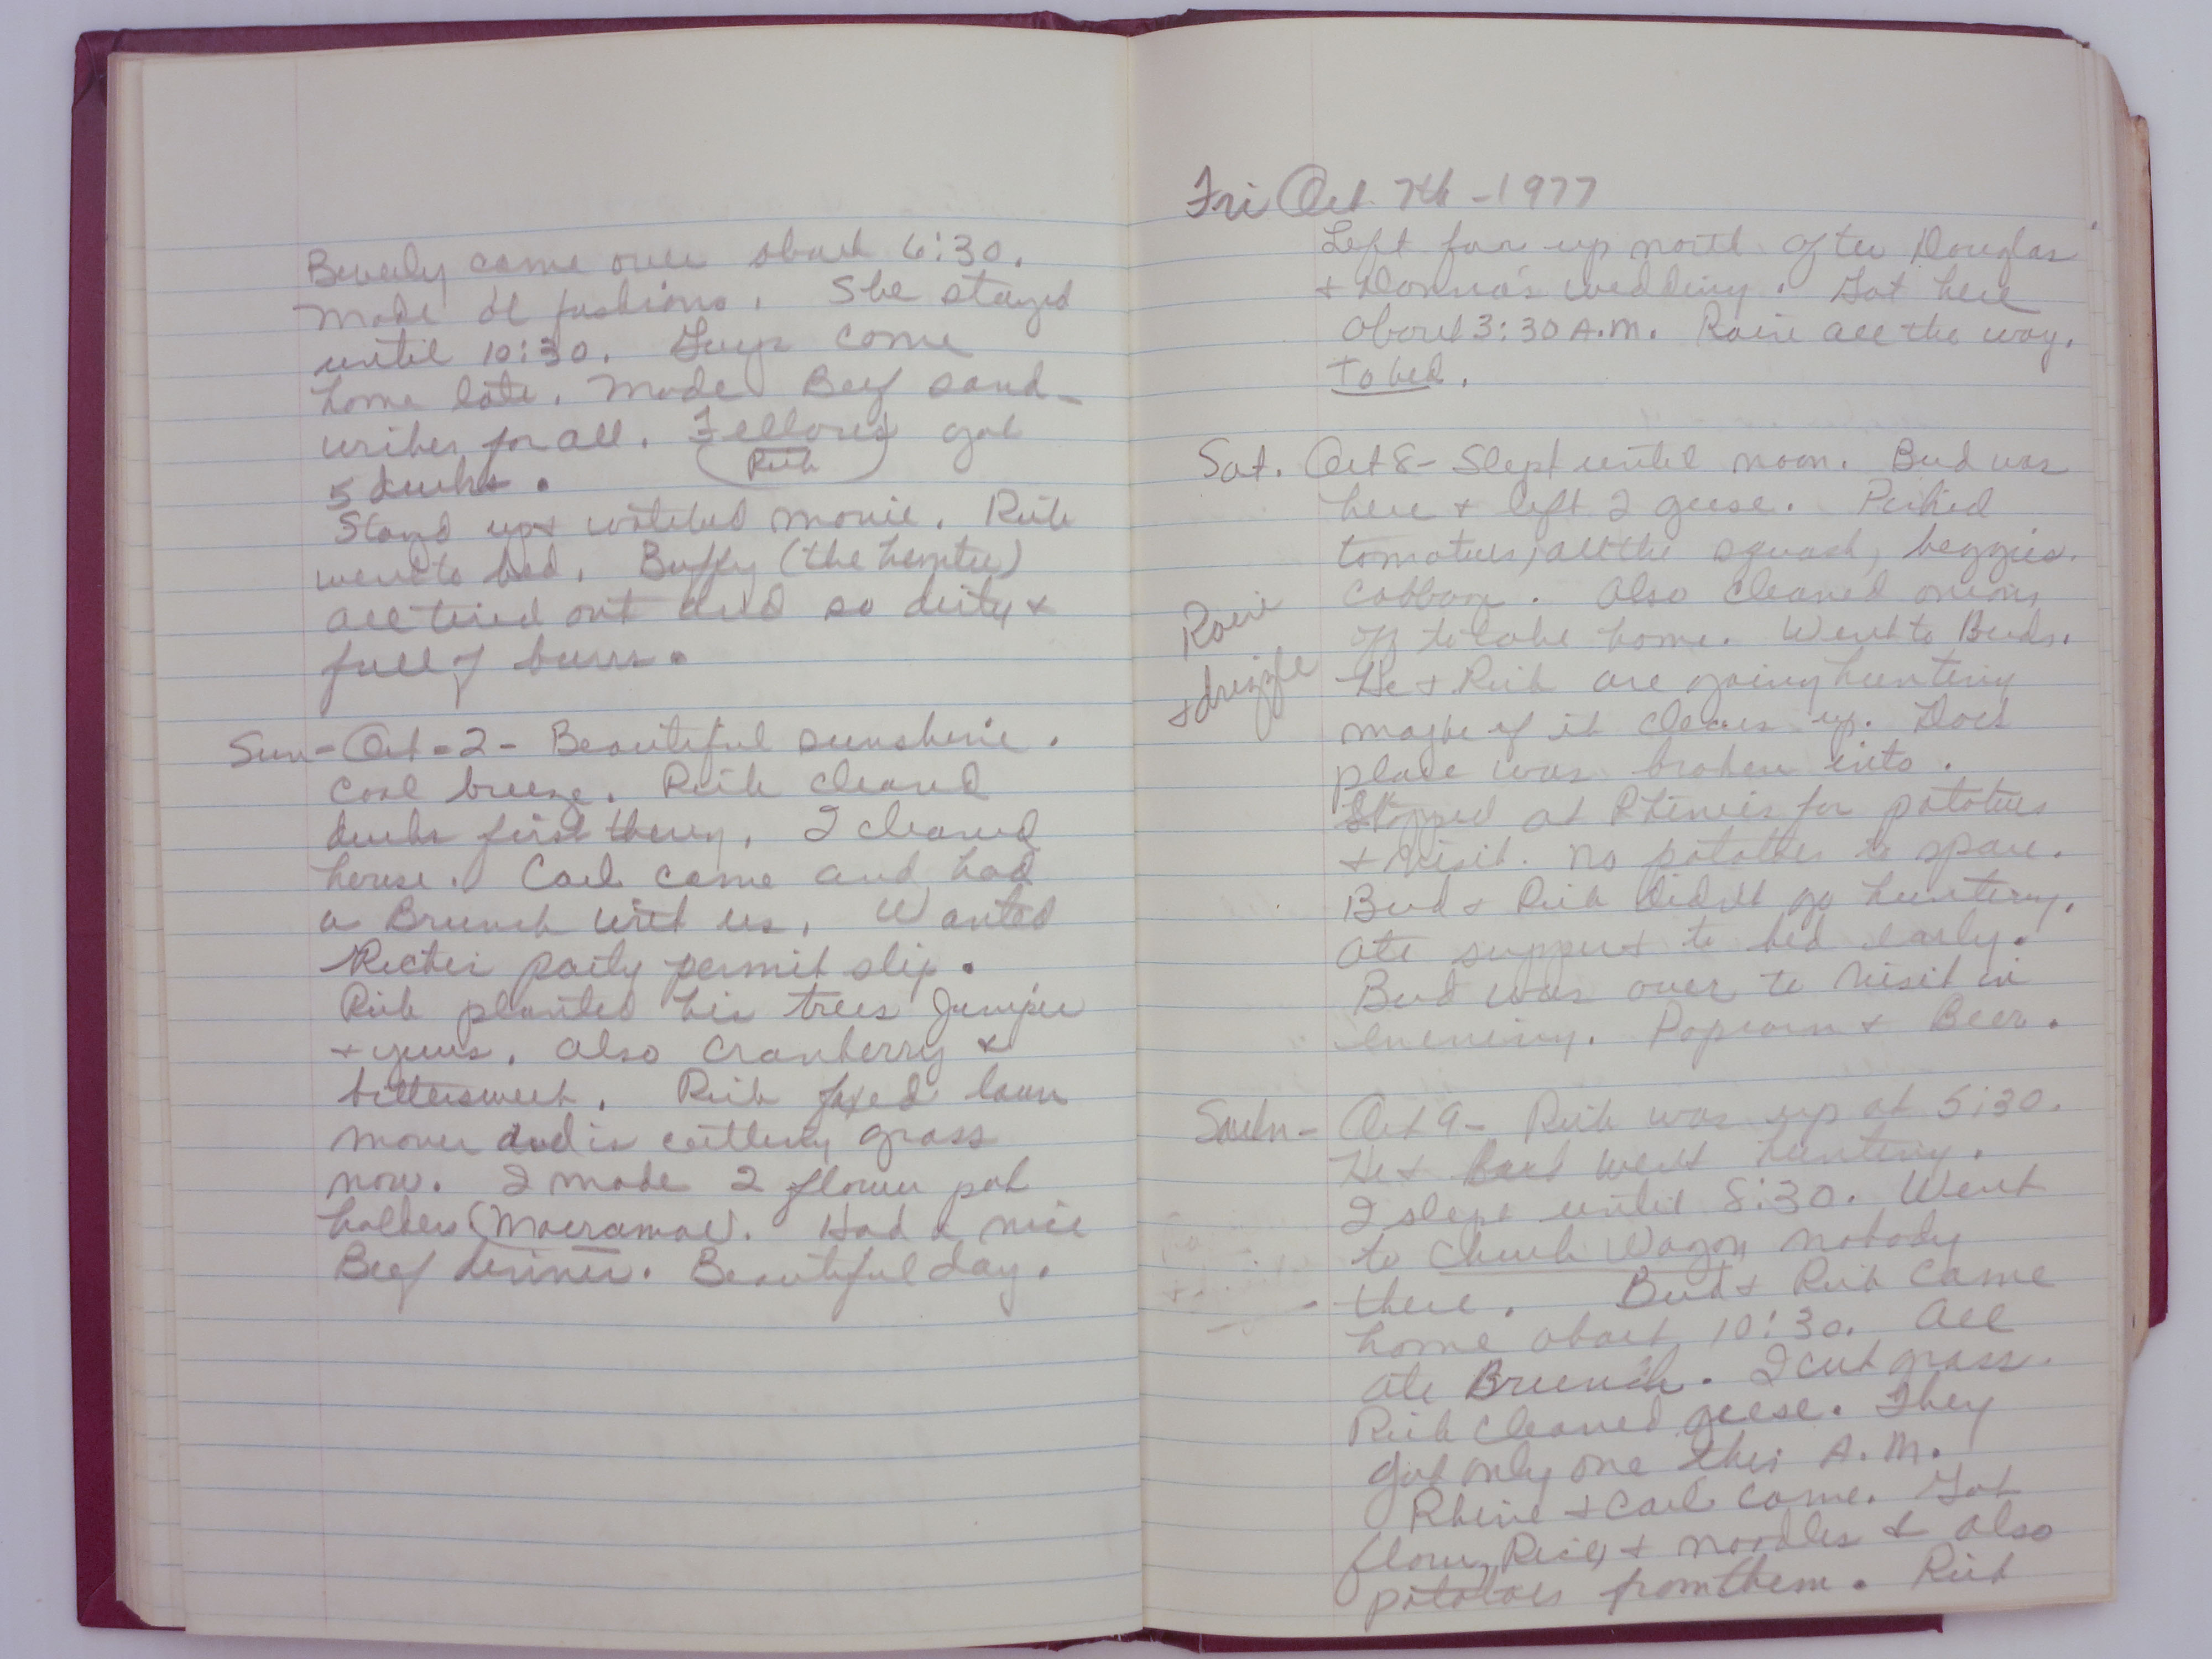 Beverly came over about 6:30.
Made ol fashions. She stayed
until 10:30. Guys come
home late. Made Beef sand-
wiches for all. Fellows got
(Rich)
5 ducks.
Stayd up + watched movie. Rich
went to bed. Buffy (the hunter)
all tired out and so dirty +
full of burrs.
Sun - Oct - 2 - Beautiful sunshine.
Cool breeze. Rich cleaned
ducks first thing. I cleaned
house. Carl came and had
a Brunch with us. Wanted
Riches party permit slip.
Rich planted his trees Juniper
+ yews. Also Cranberry &
bittersweet. Rich fixed lawn
mower and is cutting grass
now. I made 2 flower pot
holders (Macramae). Had a nice
Beef dinner. Beautiful day.
Fri Oct 7th - 1977
Left for up north after Douglas
+ Donna's wedding. Got here
about 3:30 A.M. Rain all the way.
To bed.
Sat. Oct 8 - Slept until noon. Bud was
here + left 2 geese. Picked
tomatoes, all the squash, beggies.
Cabbage. Also cleaned onions
off to take home. Went to Buds.
Rain
+ drizzle
He + Rich are going hunting
maybe if it clears up. Docs
place was broken into.
Stopped at Rhines for potatoes
+ visit. No potatoes to spare.
Bud + Rich didnt go hunting.
Ate supper + to bed early.
Bud was over to visit in
evening. Popcorn + Beer.
Sun - Oct 9 - Rich was up at 5:30.
He + Bud went hunting.
I slept until 8:30. Went
to Chuck Wagon nobody
there. Bud + Rich came
home about 10:30. All
ate Brunch. I cut grass.
Rich cleaned geese. They
got only one this A.M.
Rhine + Carl came. Got
flour, Rice, + noodles & also
potatoes from them. Rich